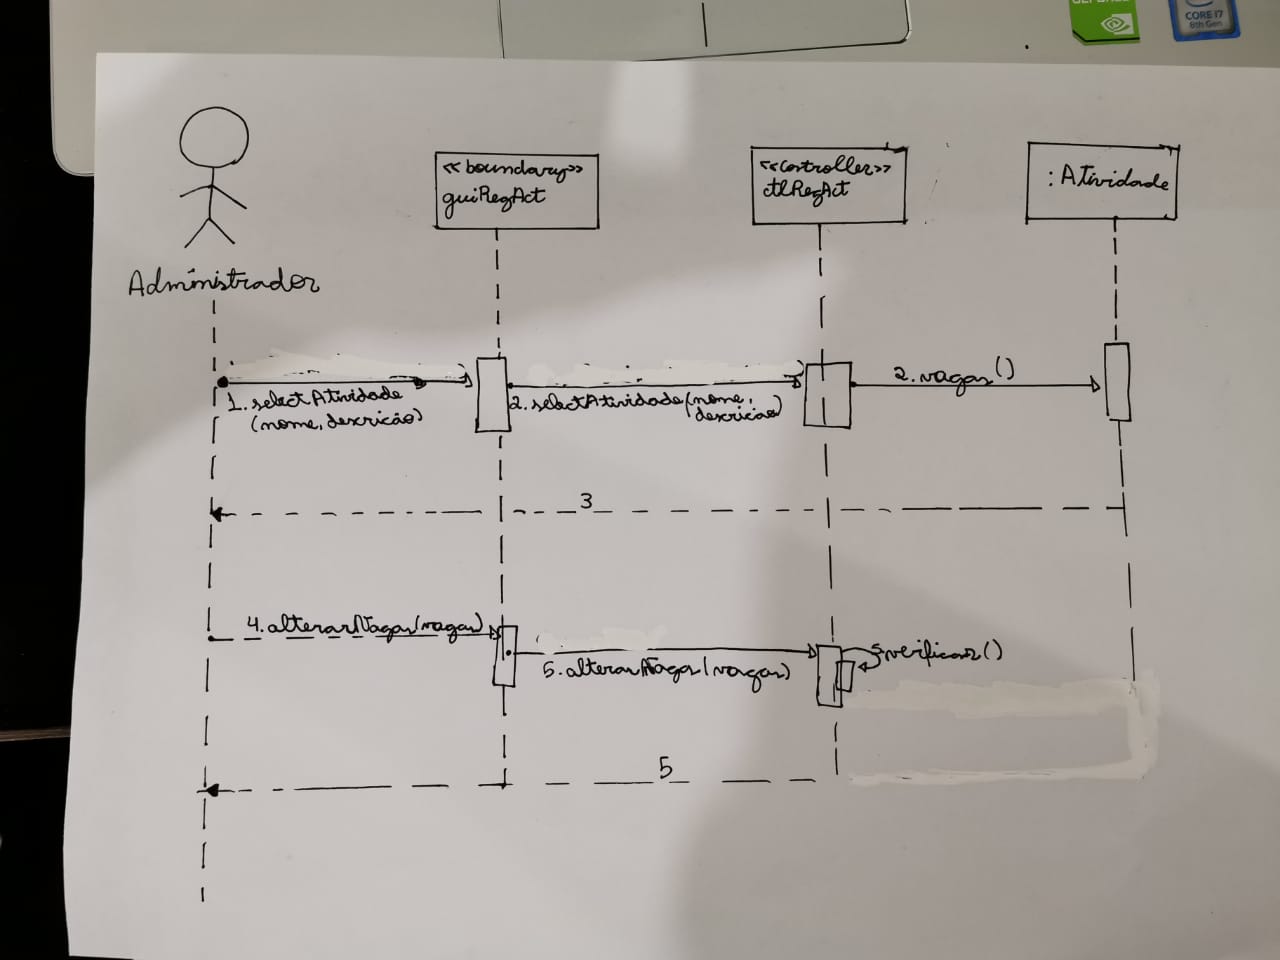 GEFORCE
CORE i7
8th Gen
<<boundary>>
guiRegAct
<<controller>>
ctlRegAct
: Atividade
Administrador
1. selectAtividade
(nome, descrição)
2. selectAtividade(nome,
descricão)
2. vagas()
3
4. alterarVagas(vagas)
5. alterarVagas(vagas)
5 verificar()
5